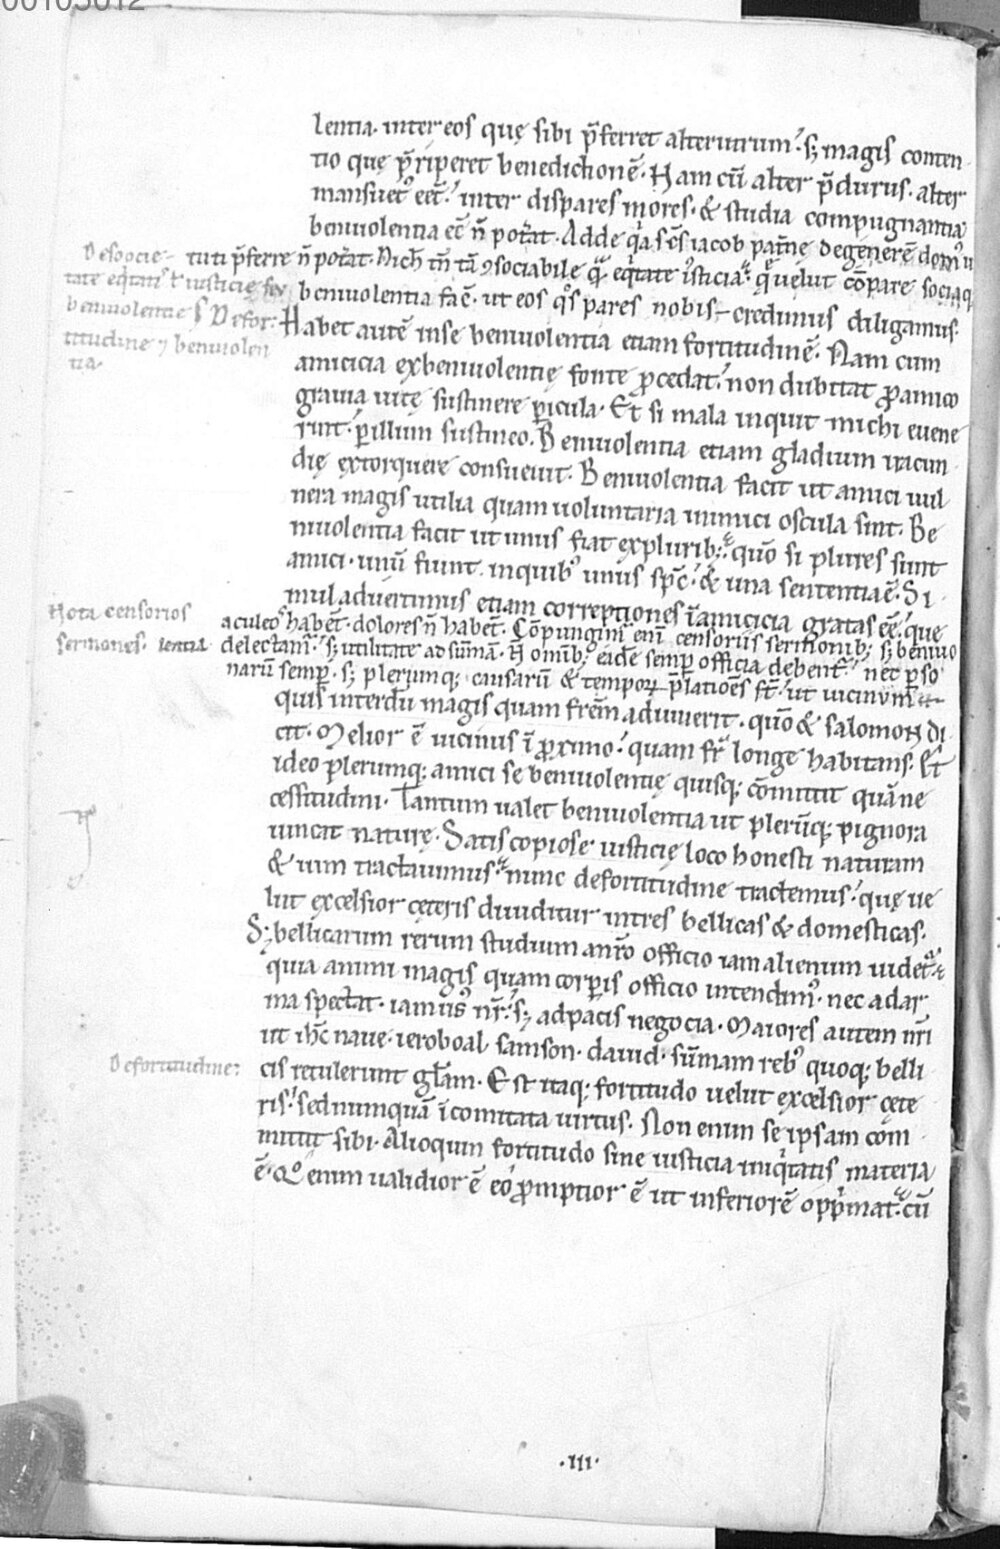 00105012
lentia· inter eos quę sibi p̄ferret alterutrum· sꝫ magis conten
tio quę p̄riperet benedictionē· Nam cū alter p̄durus· alter
mansuetꝰ eēt· inter dispares mores· & studia compugnantia
beniuolentia eē n̄ poterat· Adde qͥa s̄c̄s iacob pat̄nę degenerē domui
Desocie tuti p̄ferre n̄ poterat· Nich̄ tn̄ tā ↄsociabile qͣ eq̄tate iusticia· quę uelut cōpare sociaq
tate eq̄tatis ł iusticię seu beniuolentia facē· ut eos qͦs pares nobis credimus diligamus·
beniuolentię § Defor: Habet autē inse beniuolentia etiam fortitudinē· Nam cum
titudine ⁊ beniuolen amicicia ex beniuolentię fonte ꝓcedat· non dubitat ꝓ amico
tia· grauia uitę sustinere ꝑicula· Et si mala inquit michi euene
rint· ꝑ illum sustineo. Beniuolentia etiam gladium iracun
dię extorquere consueuit· Beniuolentia facit ut amici uul
nera magis utilia quam uoluntaria inimici oscula sint· Be
niuolentia facit ut unus fiat ex plurib; quō si plures sunt
amici· unū fiunt inquibꝰ unus sp̄c & una sententia ē· Si
mul aduertimus etiam correptiones ī amicicia gratas eē· que
Nota censorios aculeos habēt· dolores n̄ habēt· Cōpungimur enī censoriis sermonib; sꝫ beniuo
sermones. lentia delectamur· sꝫ utilitate ad sūmā· N̄ omib; eadē semꝑ officia debent̄ nec ꝑso
narū semꝑ· sꝫ plerumq; causarū & temporꝝ p̄lationes st̄· ut uicinum
quis interdū magis quam fr̄em adiuuerit· quō & salomon di
cit· Melior ē uicinus ī ꝓximo· quam fr̄ longe habitans· Et
ideo plerumq; amici se beniuolentię quisq; cōmittit quā ne
cessitudini· Tantum ualet beniuolentia ut plerūq; pignora
uincat naturę· Satis copiose iusticię loco honesti naturam
& uim tractauimus· nunc de fortitudine tractemus· quę ue
lut excelsior cęteris diuiditur in res bellicas & domesticas·
Sꝫ bellicarum rerum studium a nr̄o officio iam alienum uidet̄
quia animi magis quam corꝑis officio intendimꝰ· nec ad ar
ma spectat· iam usꝰ nr̄· sꝫ ad pacis negocia· Maiores autem nr̄i
ut ih̄c naue· ieroboal samson· dauid· sūmam rebꝰ quoq; belli
De fortitudine: cis retulerunt gl̄am· Est itaq; fortitudo uelut excelsior cęte
ris· sed numquā īcomitata uirtus· Non enim se ipsam com
mittit sibi· Alioquin fortitudo sine iusticia iniqͥtatis materia
ē· Qͦ enim ualidior ē eo ꝓmptior ē ut inferiorē opp̄mat· cū
·III·